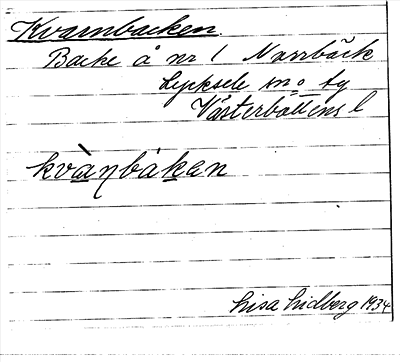 Kvarnbacken.
Backe å nr 1 Norrbäck
Lycksele sn o tg
Västerbottens l
kvànbákan
Lisa Lidberg 1934